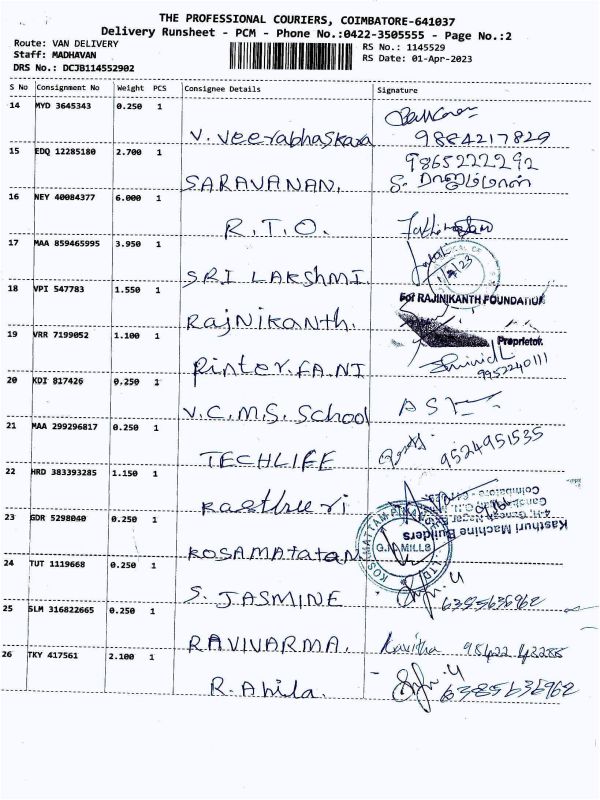 THE PROFESSIONAL COURIERS, COIMBATORE-641037
Delivery Runsheet - PCM - Phone No.:0422-3505555 - Page No.:2
Route: VAN DELIVERY
RS No.: 1145529
Staff: MADHAVAN
RS Date: 01-Apr-2023
DRS No.: DCJB114552902
S No Consignment No Weight PCS Consignee Details Signature
14 MYD 3645343 0.250 1
V. Veerabhaskara 9884217829
15 EDQ 12285180 2.700 1 9865222292
SARAVANAN. S.
16 NEY 40084377 6.000 1
R.T.O.
17 MAA 859465995 3.950 1
SRI LAKSHMI.
18 VPI 547783 1.550 1 For RAJINIKANTH FOUNDATION
RajNikanth.
19 VRR 7199052 1.100 1 Proprietor.
Rinter.FA.NI 9952240111
20 KDI 817426 0.250 1
V.C.M.S. School
21 MAA 299296817 0.250 1 9524951535
TECHLIFE
22 HRD 383393285 1.150 1
Kasthuri
Coimbatore
Kasthuri Machine Builders
23 GDR 5298040 0.250 1
G.N MILLS
KOSAMATATAM
24 TUT 1119668 0.250 1
S. JASMINE 6385636962
25 SLM 316822665 0.250 1
RAVIVARMA. Kavitha
26 TKY 417561 2.100 1
R. Ahila. 6385636962